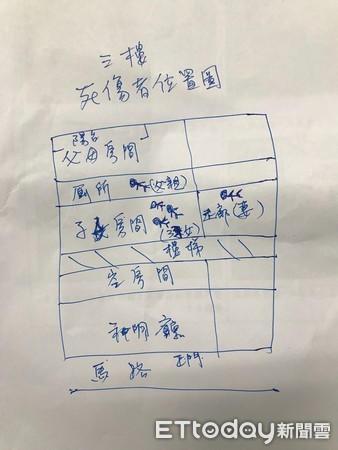 三樓
死傷者位置圖
陽台
父母房間
廁所 (父親)
子女房間 (三女) 主廊 (妻)
樓梯
空房間
神明廳
馬路 正門
ETtoday新聞雲